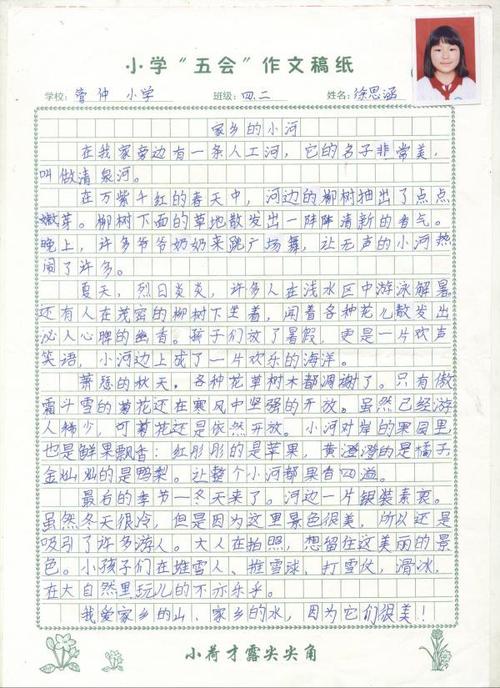 小学“五会”作文稿纸
学校：管仲 小学 班级：四.二 姓名：徐思涵
家乡的小河
在我家旁边有一条人工河，它的名子非常美，
叫做清泉河。
在万紫千红的春天中，河边的柳树抽出了点点
嫩芽。柳树下面的草地散发出一阵阵清新的香气。
晚上，许多爷爷奶奶来跳广场舞，让无声的小河热
闹了许多。
夏天，烈日炎炎，许多人在浅水区中游泳解暑。
还有人在茂密的柳树下坐着，闻着各种花儿散发出
沁人心脾的幽香。孩子们放了暑假，更是一片欢声
笑语，小河边上成了一片欢乐的海洋。
萧瑟的秋天，各种花草树木都凋谢了。只有傲
霜斗雪的菊花还在寒风中坚强的开放。虽然已经游
人稀少，可菊花还是依然开放。小河对岸的果园里，
也是鲜果飘香：红彤彤的是苹果，黄澄澄的是橘子
金灿灿的是鸭梨。让整个小河都果香四溢。
最后的季节—冬天来了。河边一片银装素裹。
虽然冬天很冷，但是因为这里景色很美，所以还是
吸引了许多游人。大人在拍照，想留住这美丽的景
色。小孩子们在堆雪人、推雪球，打雪仗，滑冰，
在大自然里玩儿的不亦乐乎。
我爱家乡的山、家乡的水，因为它们很美！
小荷才露尖尖角